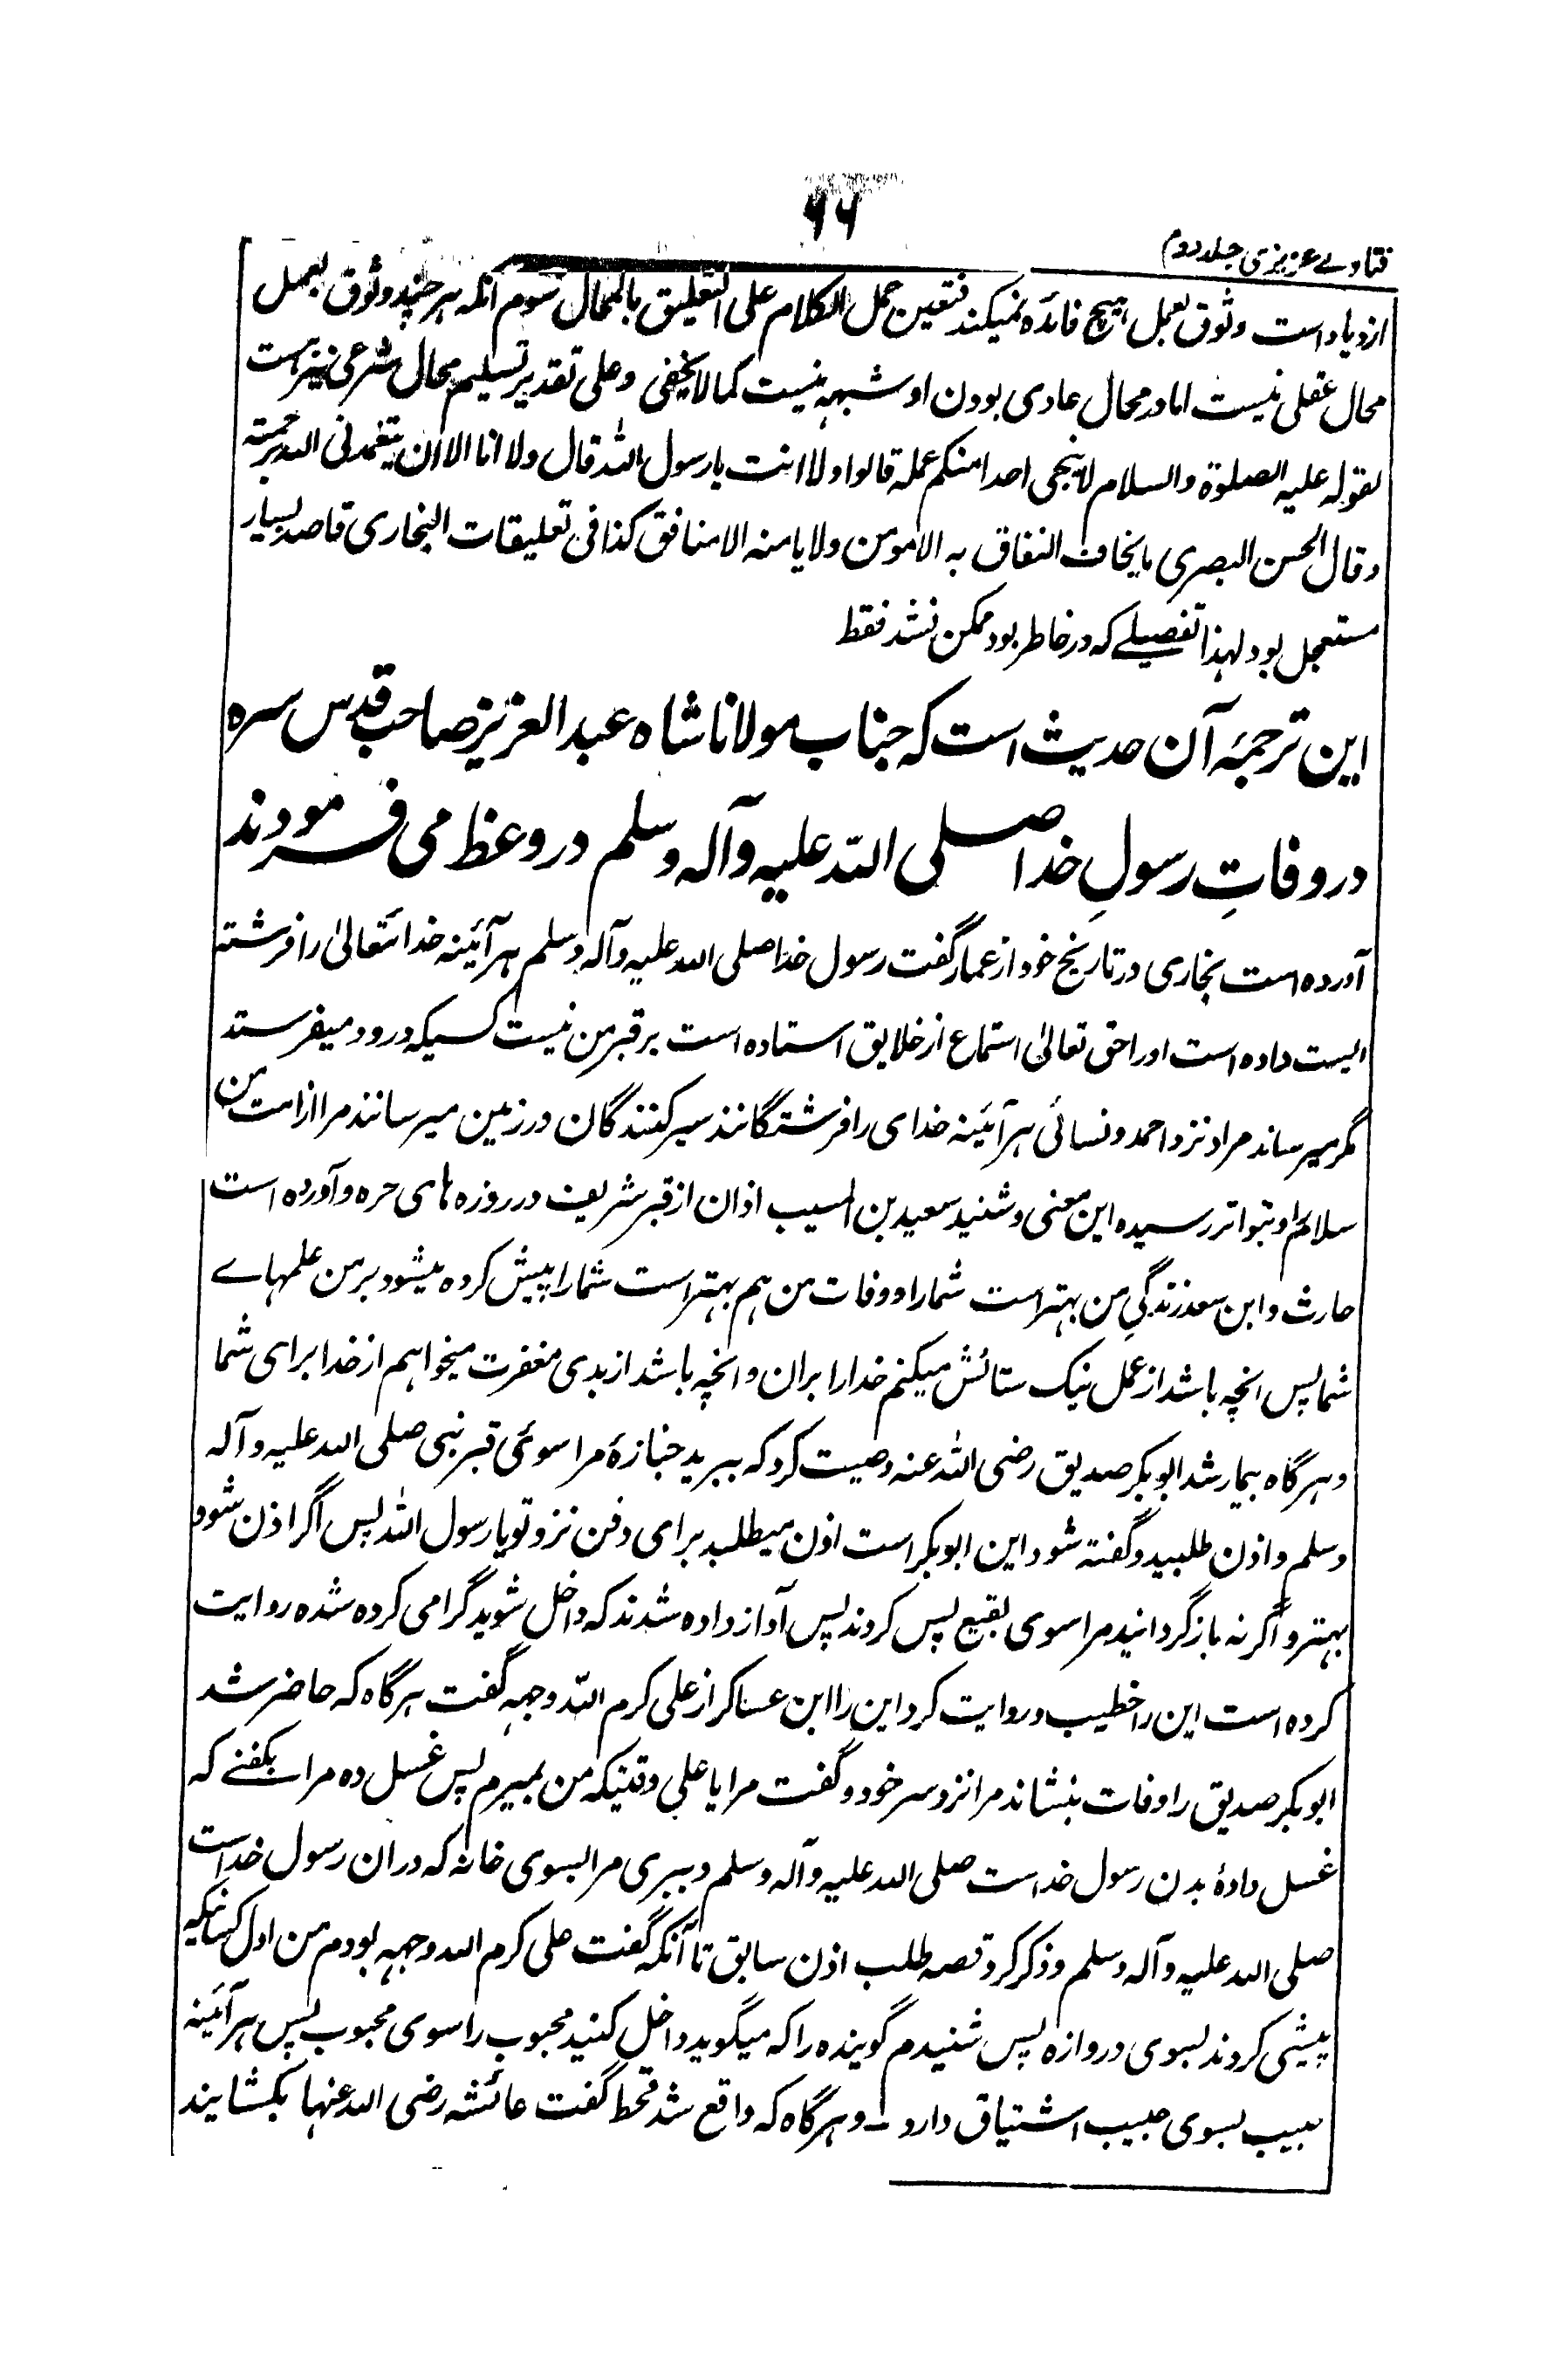 ۹۹
فتاوے عزیزی جلد دوم
ازدیاد است وثوق بعمل ہیچ فائدہ نمیکند فتعین حمل الکلام علی التعلیق بالمحال سوم آنکہ ہر چند وثوق بعمل
محال عقلی نیست اما در محال عادی بودن او شبہہ نیست کما لا یخفی وعلی تقدیر تسلیم محال شرعی نیز ہست
لقولہ علیہ الصلوۃ والسلام لا ینجی احدا منکم عملہ قالوا ولا انت یا رسول اللہ قال ولا انا الا ان یتغمدنی اللہ برحمتہ
وقال الحسن البصری ما یخاف النفاق بہ الا مومن ولا یامنہ الا منافق کذا فی تعلیقات البخاری قاصد بسیار
مستعجل بود لہذا تفصیلے کہ در خاطر بود ممکن نشد فقط
این ترجمۂ آن حدیث است کہ جناب مولانا شاہ عبد العزیز صاحب قدس سرہ
در وفاتِ رسولِ خدا صلی اللہ علیہ وآلہ وسلم در وعظ می فرمودند
آوردہ است بخاری در تاریخ خود از عمار گفت رسول خدا صلی اللہ علیہ وآلہ وسلم ہر آئینہ خدا تعالیٰ را فرشتہ
ایست دادہ است اورا حق تعالیٰ استماع از خلایق استادہ است بر قبر من نیست کسیکہ درود میفرستد
مگر میرساند مرا و نزد احمد و نسائی ہر آئینہ خدای را فرشتگانند سیر کنندگان در زمین میرسانند مرا از امت من
سلام او بتواتر رسیدہ این معنی و شنید سعید بن المسیب اذان از قبر شریف در روزہ ہای حرہ و آوردہ است
حارث و ابن سعد زندگیِ من بہتر است شمارا و وفات من ہم بہتر است شمارا پیش کردہ میشود بر من علمہاے
شما پس انچہ باشد از عمل نیک ستائش میکنم خدارا بران و انچہ باشد از بدی مغفرت میخواہم از خدا برای شما
و ہرگاہ بیمار شد ابوبکر صدیق رضی اللہ عنہ وصیت کرد کہ ببرید جنازۂ مرا سوئی قبر نبی صلی اللہ علیہ وآلہ
وسلم و اذن طلبید و گفتہ شود این ابوبکر است اذن میطلبد برای دفن نزد تو یا رسول اللہ پس اگر اذن شود
بہتر و اگر نہ باز گردانید مرا سوی بقیع پس کردند پس آواز دادہ شدند کہ داخل شوید گرامی کردہ شدہ روایت
کردہ است این را خطیب و روایت کرد این را ابن عساکر از علی کرم اللہ وجہہ گفت ہرگاہ کہ حاضر شد
ابوبکر صدیق را وفات بنشاند مرا نزد سر خود و گفت مرا یا علی وقتیکہ من بمیرم پس غسل دہ مرا بکفنے کہ
غسل دادۂ بدن رسول خداست صلی اللہ علیہ وآلہ وسلم و ببری مرا بسوی خانہ کہ دران رسول خداست
صلی اللہ علیہ وآلہ وسلم و ذکر کرد قصہ طلب اذن سابق تا آنکہ گفت علی کرم اللہ وجہہ بودم من اول کسانیکہ
پیشی کردند بسوی دروازہ پس شنیدم گویندہ را کہ میگوید داخل کنید محبوب را سوی محبوب پس ہر آئینہ
حبیب بسوی حبیب اشتیاق دارد ـ و ہرگاہ کہ واقع شد قحط گفت عائشہ رضی اللہ عنہا بکشایند